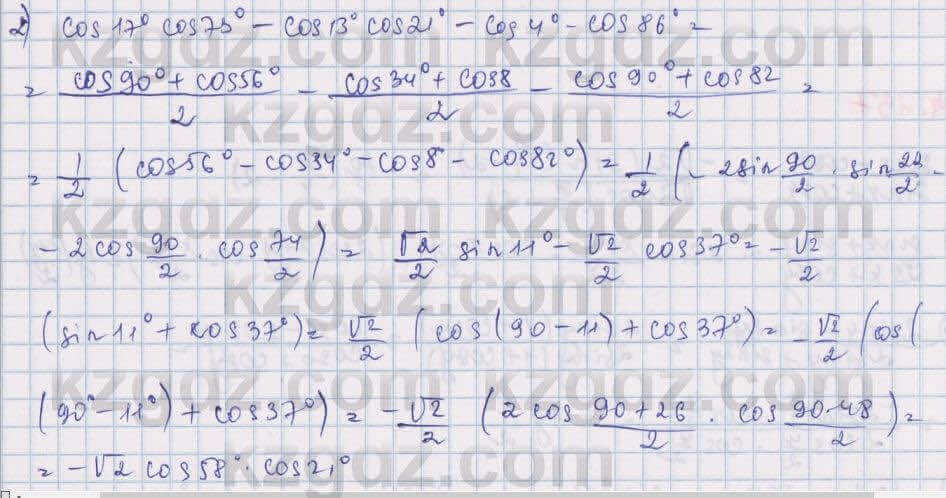 2) cos 17° cos 73° − cos 13° cos 21° − cos 4° − cos 86° =
= (cos 90° + cos 56°)/2 − (cos 34° + cos 8)/2 − (cos 90° + cos 82)/2 =
= 1/2 (cos 56° − cos 34° − cos 8° − cos 82°) = 1/2 (− 2 sin 90/2 · sin 22/2 −
− 2 cos 90/2 · cos 74/2) = √2/2 sin 11° − √2/2 cos 37° = − √2/2
(sin 11° + cos 37°) = √2/2 (cos (90 − 11) + cos 37°) = − √2/2 (cos (
(90° − 11°) + cos 37°) = − √2/2 (2 cos (90 + 26)/2 · cos (90 - 48)/2) =
= − √2 cos 58° · cos 21°
kzgdz.com
kzgdz.com
kzgdz.com
kzgdz.com
kzgdz.com